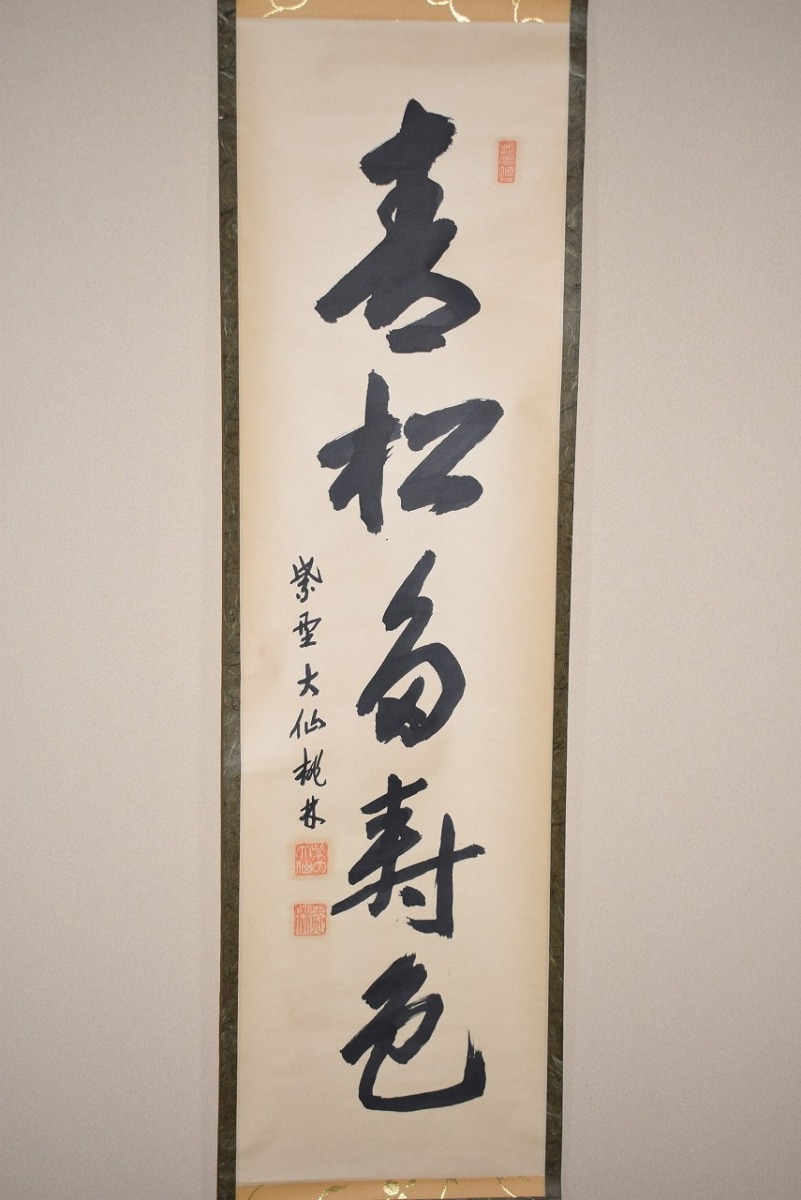 青松多寿色
紫野大仙桃林